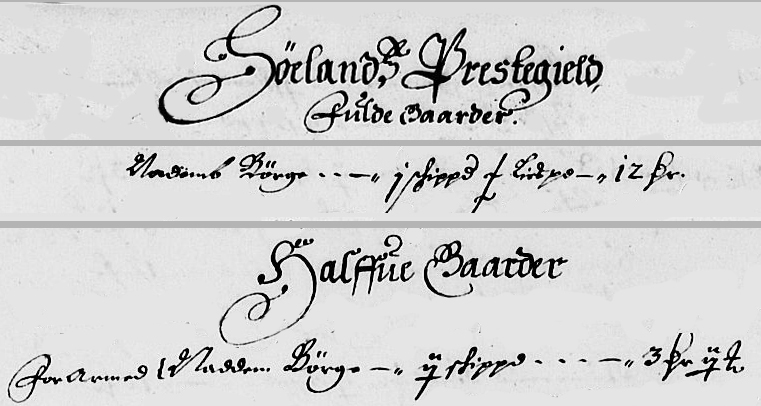 Høelandz Prestegield,
Fulde Gaarder.
Naddems Børge - - - j schippd Liespd - 12 hr.
Halffue Gaarder
Forarmed Naddem Børge - schippd - - - - 3 hr